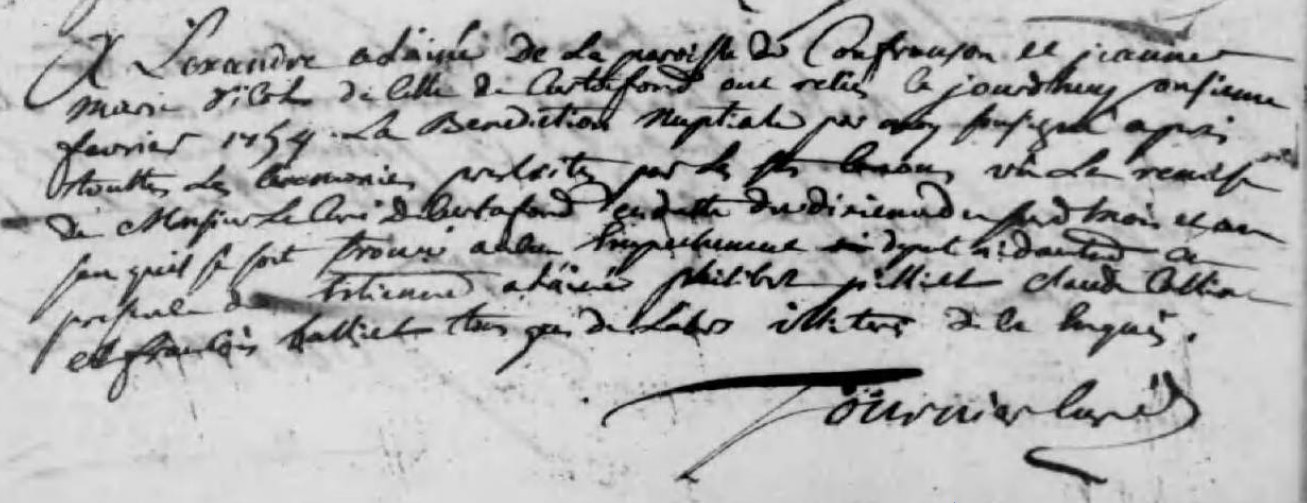 Lexandre adainé de la paroisse de Confrançon et jeanne
marie de celle de Curtafond ont reçus le jourdhuy onsieme
fevrier 1754 La Benediction Nuptiale par moy soussigné apres
touttes Les ceremonies prescrites par les sts canons vû La remise
de Monsieur Le Curé de Curtafond en datte du dixieme du susd mois et an
sans quil se soit trouvé aucun Empechement ni d'autre en
presence de Etienne adainé philibert pilliet claude
et françois tous gens de Labos illiterés de ce Enquis.
Tournier Curé